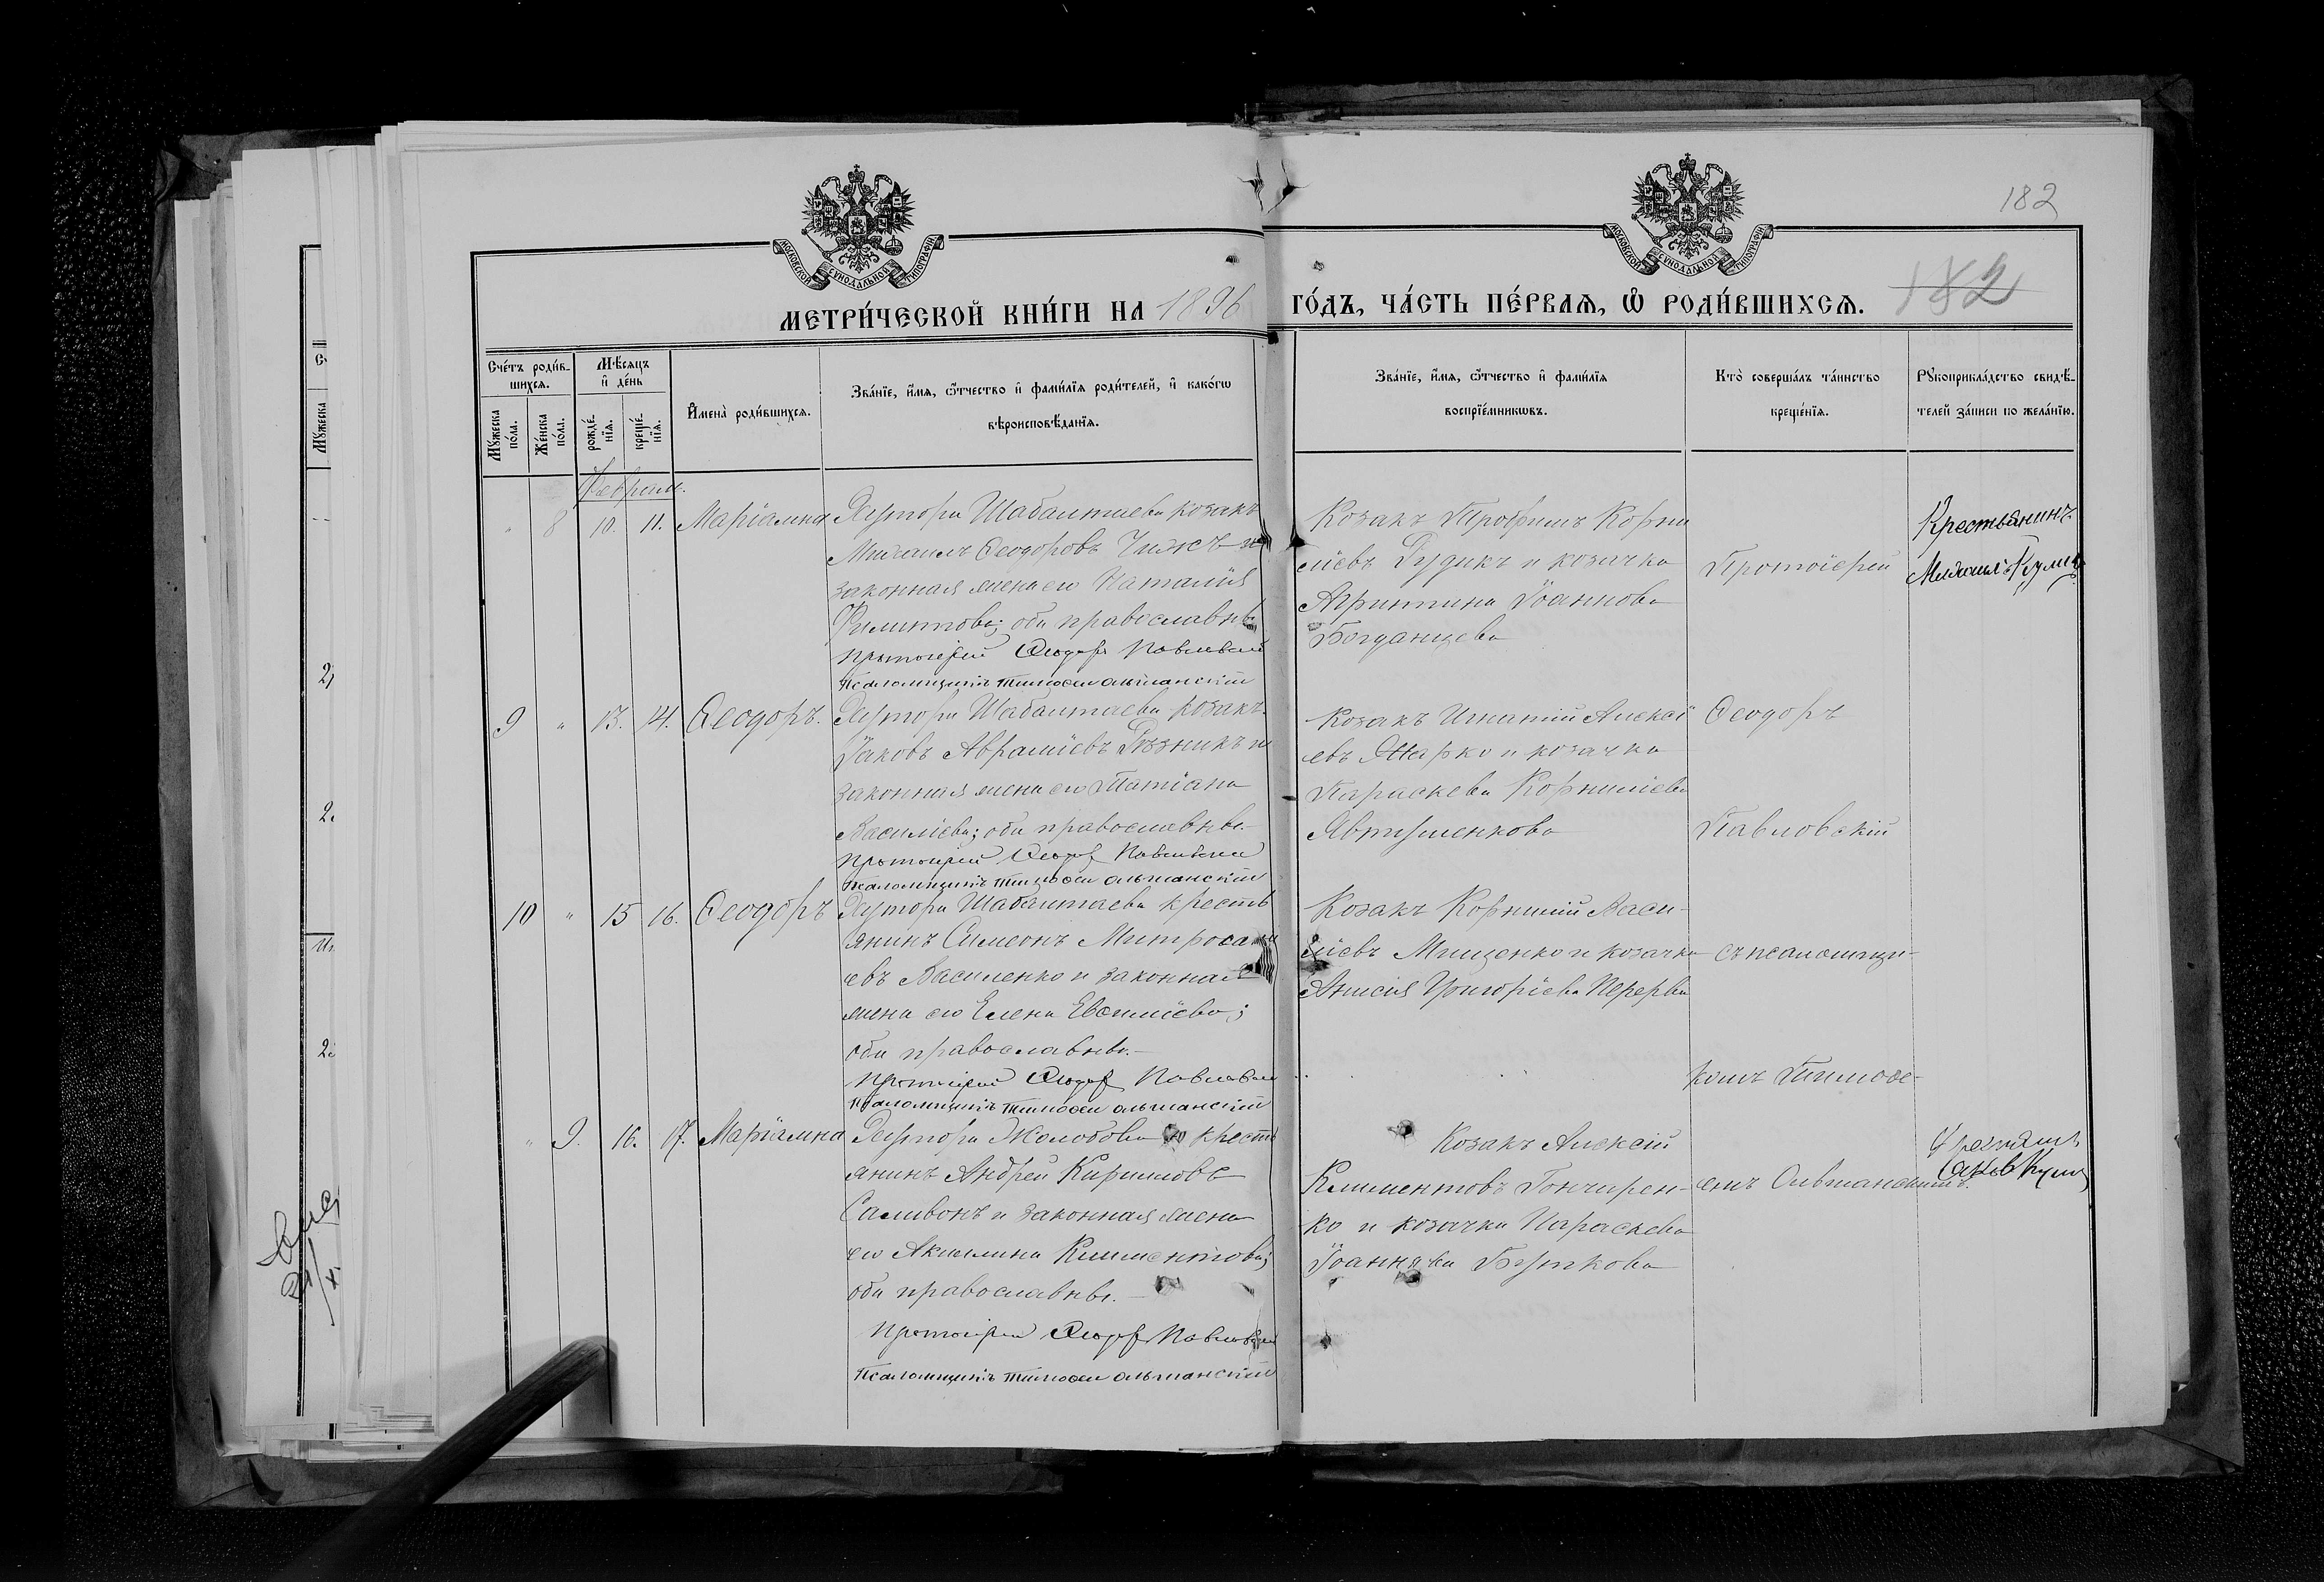 182
182
МОСКОВСКОЙ СѴНОДАЛЬНОЙ ТИПОГРАФІИ
МОСКОВСКОЙ СѴНОДАЛЬНОЙ ТИПОГРАФІИ
МЕТРИ́ЧЕСКОЙ КНИ́ГИ НА 1896 ГО́ДЪ, ЧА́СТЬ ПЕ́РВАѦ, Ѡ РОДИ́ВШИХСѦ.
Сче́тъ роди́в-
шихсѧ.
Мꙋ́жеска
по́ла.
Же́нска
по́ла.
Мѣ́сѧцъ
и҆ де́нь
рожде́-
нїѧ.
креще́-
нїѧ.
И҆мена̀ роди́вшихсѧ.
Зва́нїе, и҆́мѧ, ѻ҆́тчество и҆ фами́лїѧ роди́телей, и҆ како́гѡ
вѣроисповѣ́данїѧ.
Зва́нїе, и҆́мѧ, ѻ҆́тчество и҆ фами́лїѧ
воспрїе́мникѡвъ.
Кто̀ соверша́лъ та́инство
креще́нїѧ.
Рꙋкоприкла́дство свидѣ́-
телей за́писи по жела́нїю.
Февраль.
" 8 10. 11. Маріамна
Хутора Шабалтаева козакъ
Михаилъ Ѳеодоровъ Чижъ и
законная жена его Наталія
Филиппова; оба православные
Протоіерей Ѳеодоръ Павловскій
Псаломщикъ Тимоѳей Ольшанскій
Козакъ Трофимъ Корни
ліевъ Рудикъ и козачка
Агрипина Іоаннова
Богданцева
Протоіерей
Крестьянинъ
Михаилъ
9 " 13. 14. Ѳеодоръ.
Хутора Шабалтаева козакъ
Іаковъ Авраміевъ Рѣзникъ и
законная жена его Татіана
Василіева; оба православные.
Протоіерей Ѳеодоръ Павловскій
Псаломщикъ Тимоѳей Ольшанскій
Козакъ Игнатій Алексі
евъ и козачка
Параскева Корниліева
Явтушенкова
Ѳеодоръ
Павловскій
10 " 15 16. Ѳеодоръ
Хутора Шабалтаева кресть
янинъ Симеонъ Митрофан
евъ Василенко и законная
жена его Елена Евѳиміева;
оба православные.
Протоіерей Ѳеодоръ Павловскій
Псаломщикъ Тимоѳей Ольшанскій
Козакъ Корнилій Васи-
ліевъ Мищенко и козачка
Анисія Григоріева Перерва
съ псаломщи-
комъ Тимоѳе-
" 9. 16. 17. Маріамна
Хутора Жолобова кресть
янинъ Андрей Кирилловъ
Саливонъ и законная жена
его Акилина Климентова;
оба православные.
Протоіерей Ѳеодоръ Павловскій
Псаломщикъ Тимоѳей Ольшанскій
Козакъ Алексій
Климентовъ Гончарен-
ко и козачка Параскева
Іоаннова Буткова
емъ Ольшанскимъ.